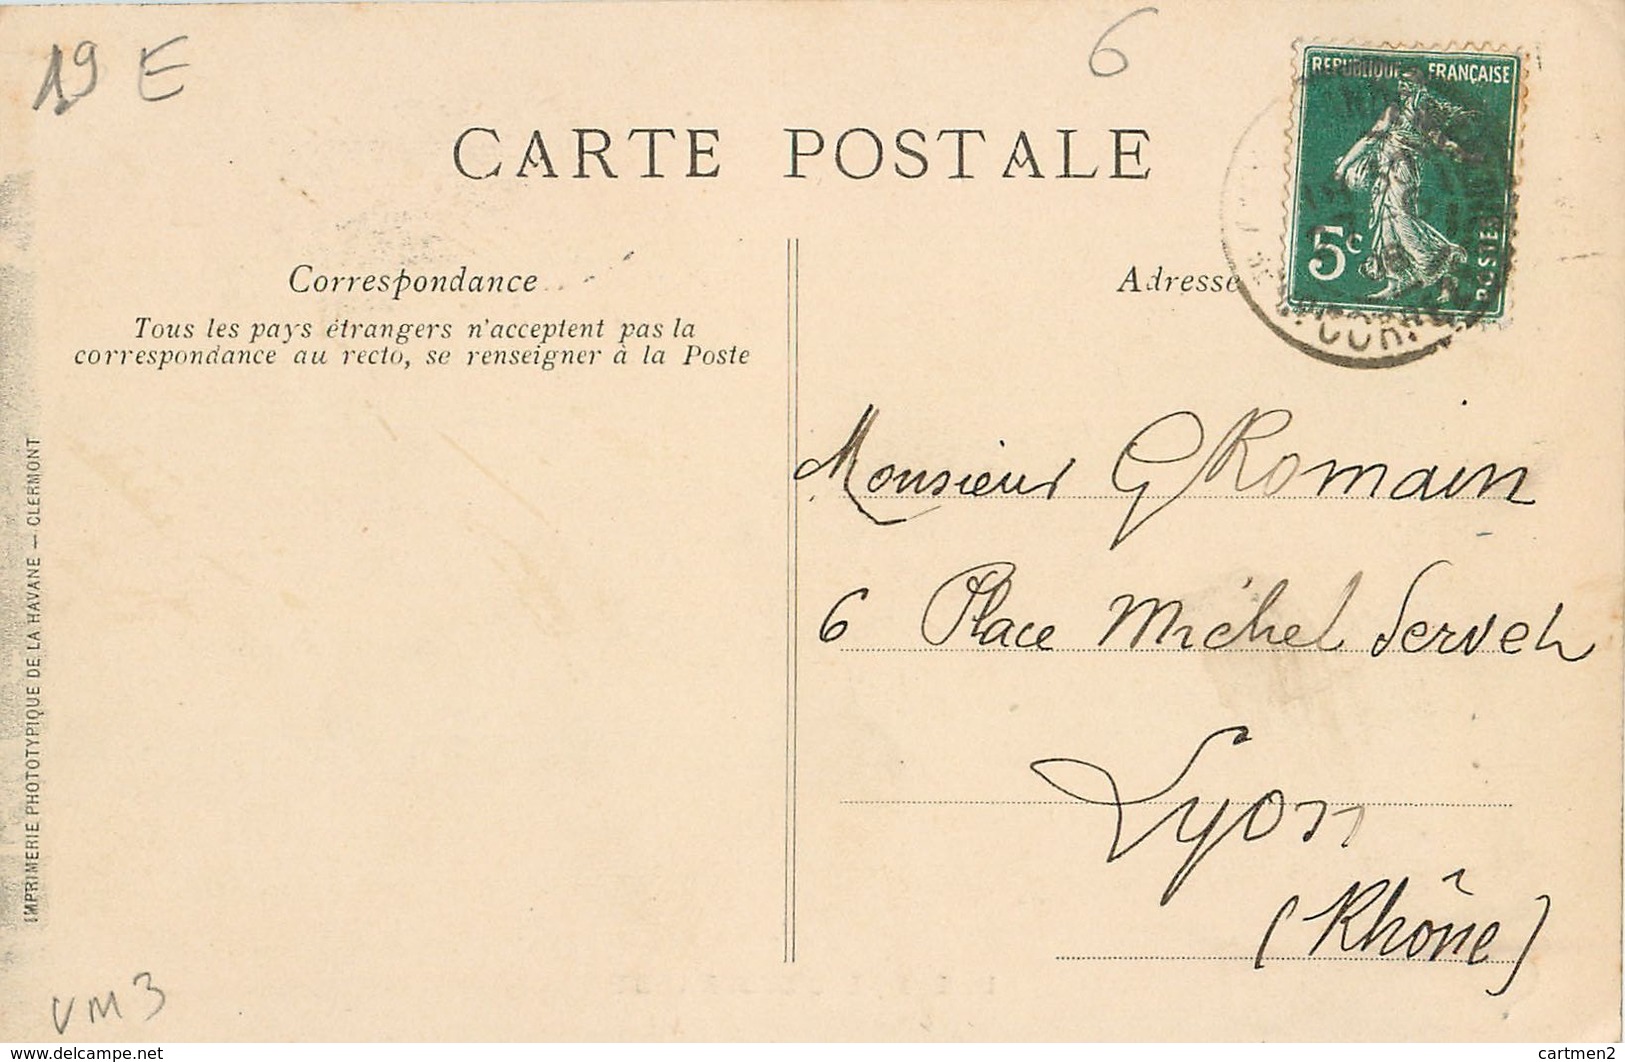 19 E
6
CARTE POSTALE
REPUBLIQUE FRANÇAISE
5c
POSTES
Correspondance
Adresse
Tous les pays étrangers n'acceptent pas la
correspondance au recto, se renseigner à la Poste
Monsieur G Romain
6 Place Michel Servet
Lyon
(Rhône)
IMPRIMERIE PHOTOTYPIQUE DE LA HAVANE — CLERMONT
VM3
www.delcampe.net
cartmen2